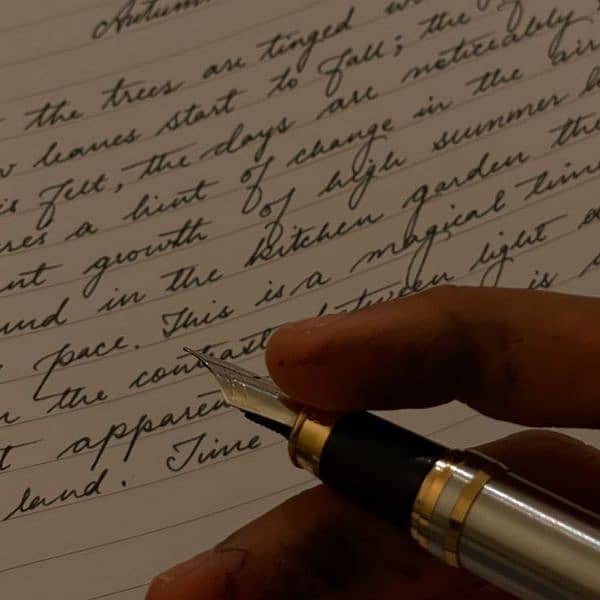 Autumn
the trees are tinged
leaves start to fall; the
is felt, the days are noticeably
a hint of change in the air
growth of high summer
in the kitchen garden the
pace. This is a magical time
the contrast between light
apparent is
land. Time